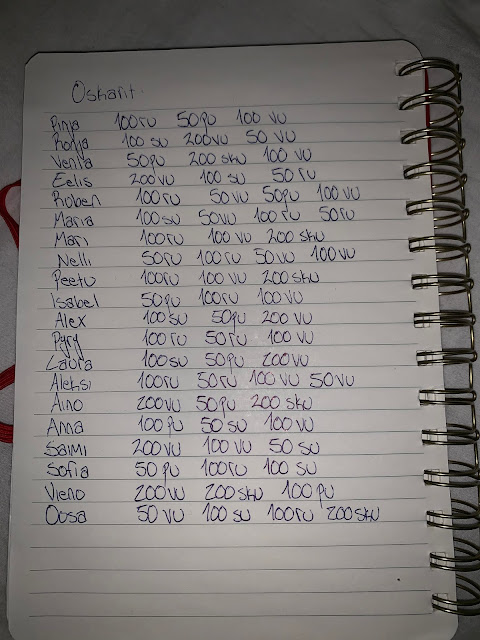 Oskarit.
Pinja 100ru 50pu 100 vu
Ronja 100 su 200vu 50 vu
Venla 50pu 200 sku 100 vu
Eelis 200vu 100 su 50 ru
Ruben 100ru 50vu 50pu 100 vu
Maria 100su 50vu 100ru 50ru
Mari 100ru 100 vu 200 sku
Nelli 50ru 100ru 50vu 100vu
Peetu 100ru 100 vu 200sku
Isabel 50pu 100ru 100 vu
Alex 100su 50pu 200 vu
Pyry 100ru 50ru 100 vu
Laura 100su 50pu 200vu
Aleksi 100ru 50ru 100vu 50vu
Aino 200vu 50pu 200 sku
Anna 100pu 50 su 100vu
Saimi 200vu 100vu 50 su
Sofia 50 pu 100ru 100 su
Vieno 200vu 200sku 100pu
Oosa 50 vu 100 su 100ru 200sku